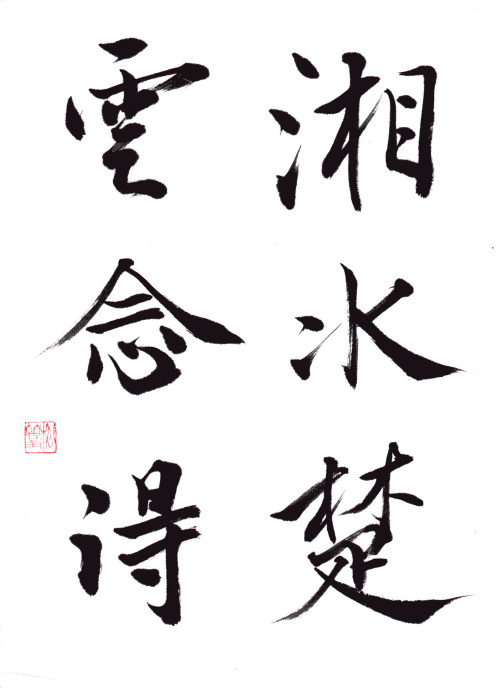 湘水楚
雲念得